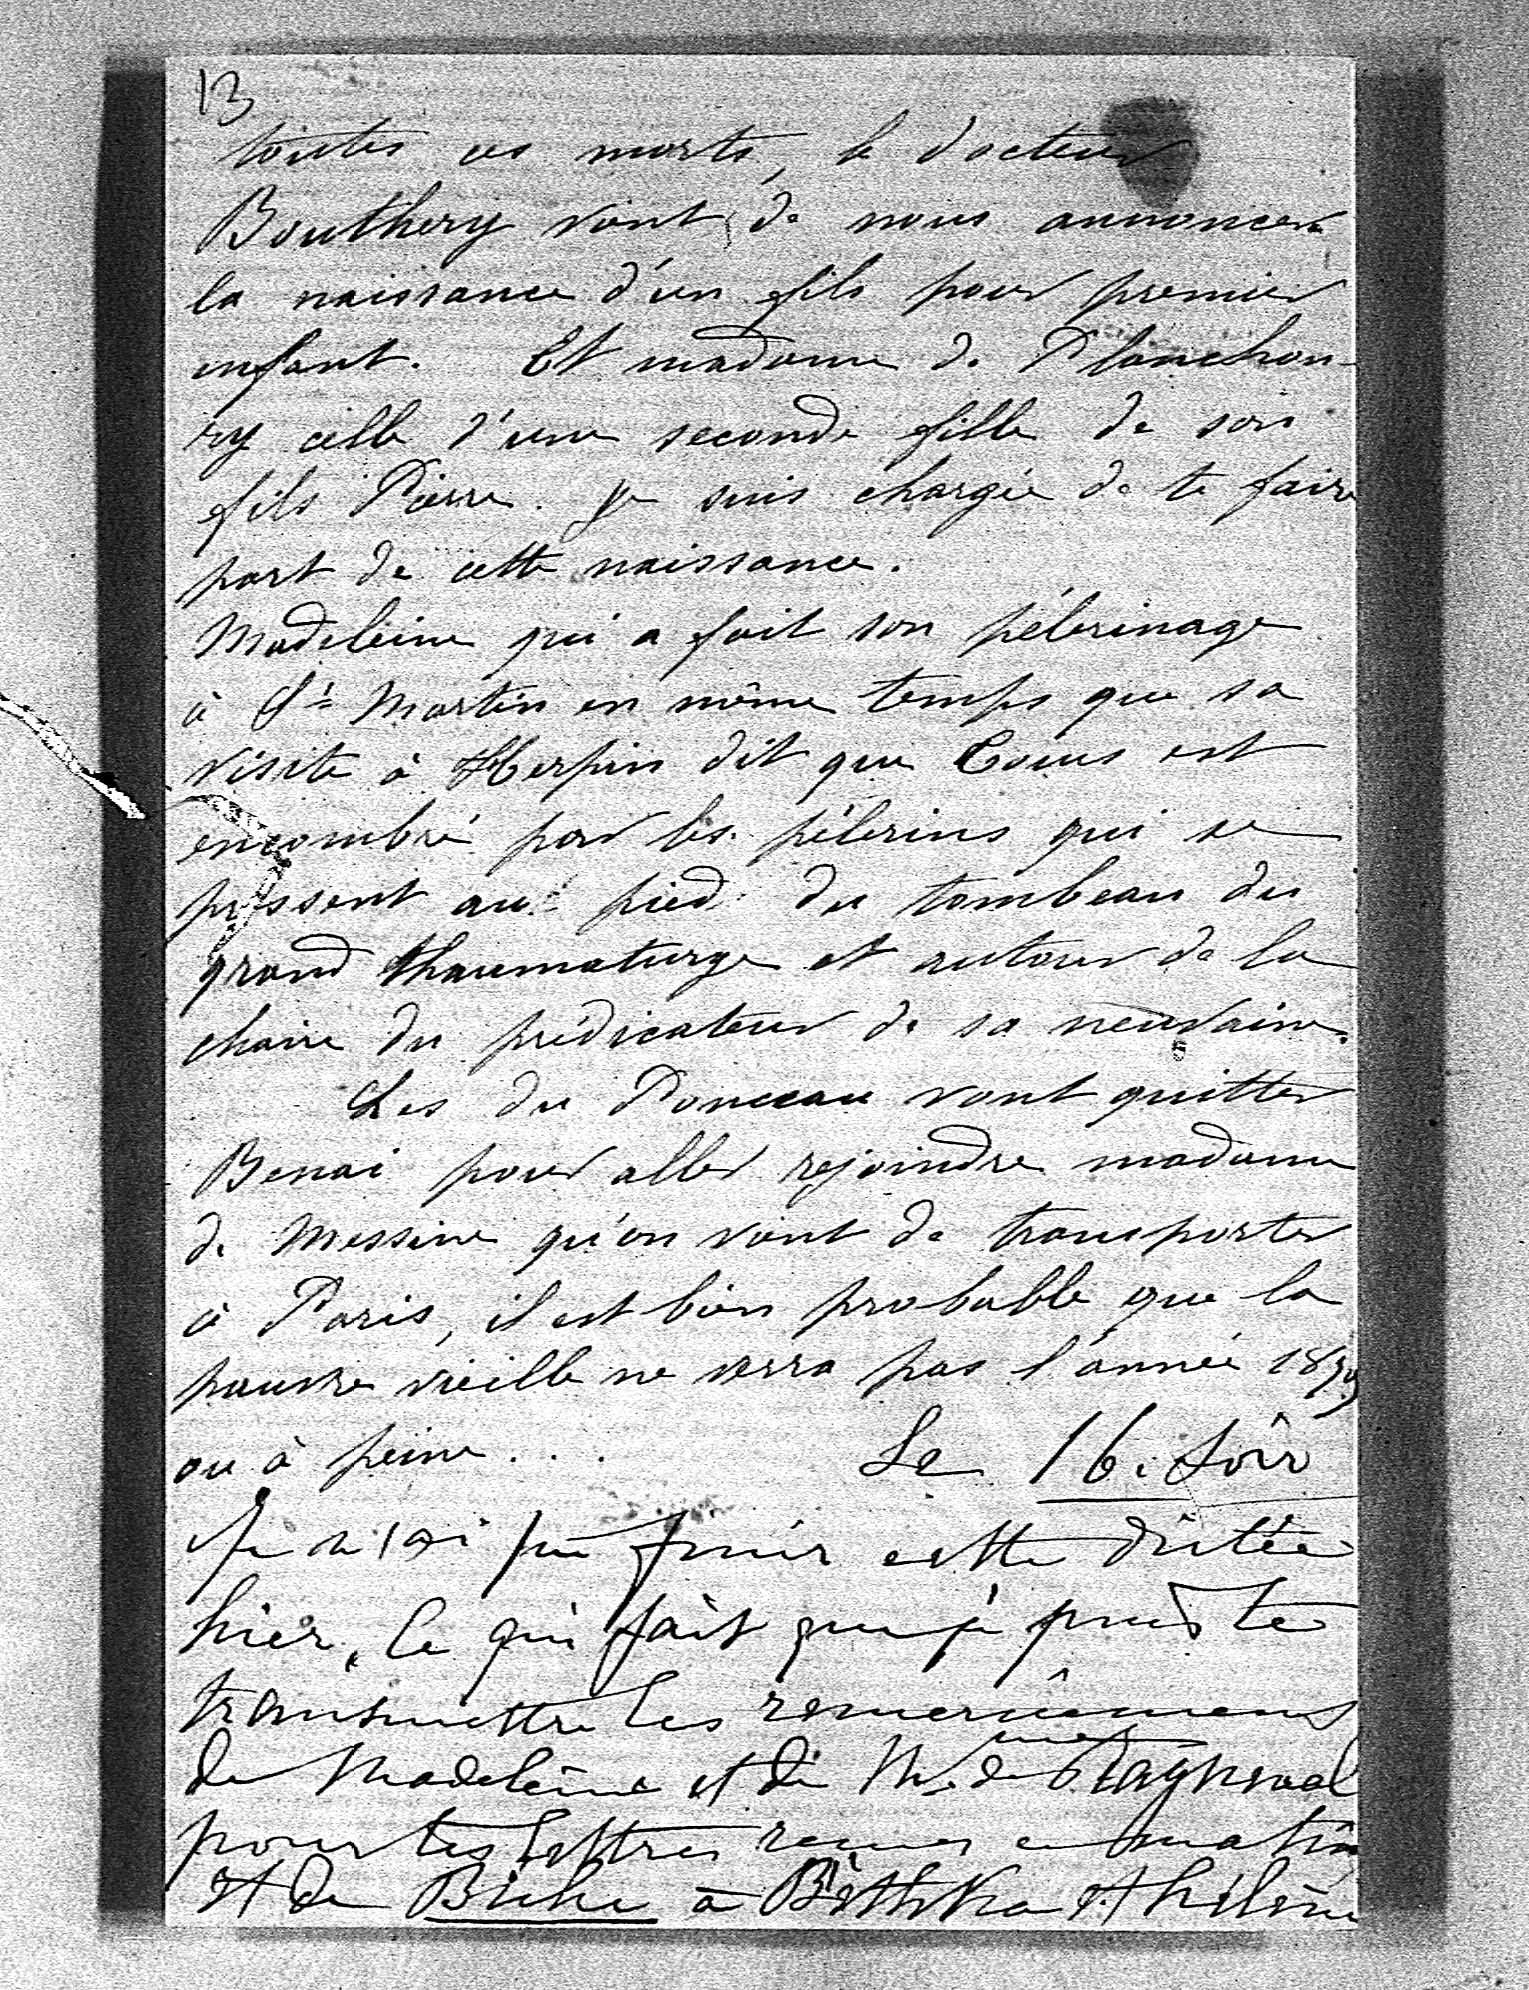 13
toutes ces morts, le docteur
Bouthery vient de nous annoncer
la naissance d'un fils pour premier
enfant. Et madame de Planchou-
ry celle d'une seconde fille de son
fils Pierre. Je suis chargée de te faire
part de cette naissance.
Madeleine qui a fait son pélerinage
à St Martin en même temps que sa
visite à Herpin dit que Tours est
encombré par les pélerins qui se
pressent au pied du tombeau du
grand thaumaturge et autour de la
chaire du prédicateur de sa neuvaine.
Les du Ponceau vont quitter
Benai pour aller rejoindre madame
de Messine qu'on vient de transporter
à Paris, il est bien probable que la
pauvre vieille ne verra pas l'année
ou à peine... Le 16. soir
Je n'ai pu finir cette dictée
hier, ce qui fait que je puis te
transmettre les remerciemens
de Madeleine et de Mme de
pour tes lettres reçues ce matin
et de Biche à et hélène